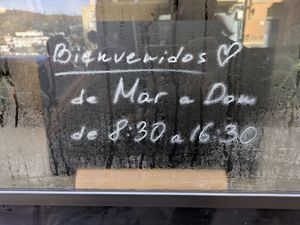 Bienvenidos ♡
de Mar a Dom
de 8:30 a 16:30